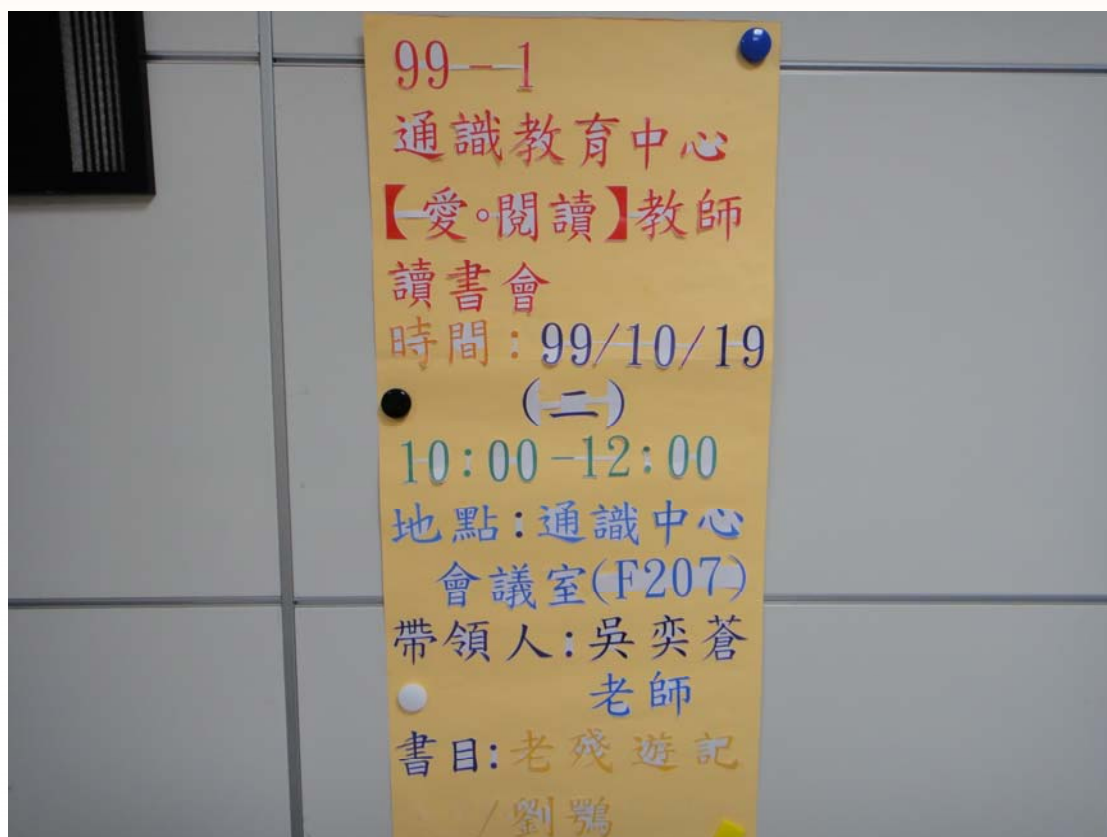 99-1
通識教育中心
【愛。閱讀】教師
讀書會
時間：99/10/19
(二)
10:00-12:00
地點：通識中心
會議室(F207)
帶領人：吳奕蒼
老師
書目：老殘遊記
/劉鶚